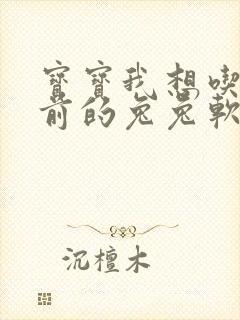 寶寶我想喫
前的兔兔軟
沉檀木